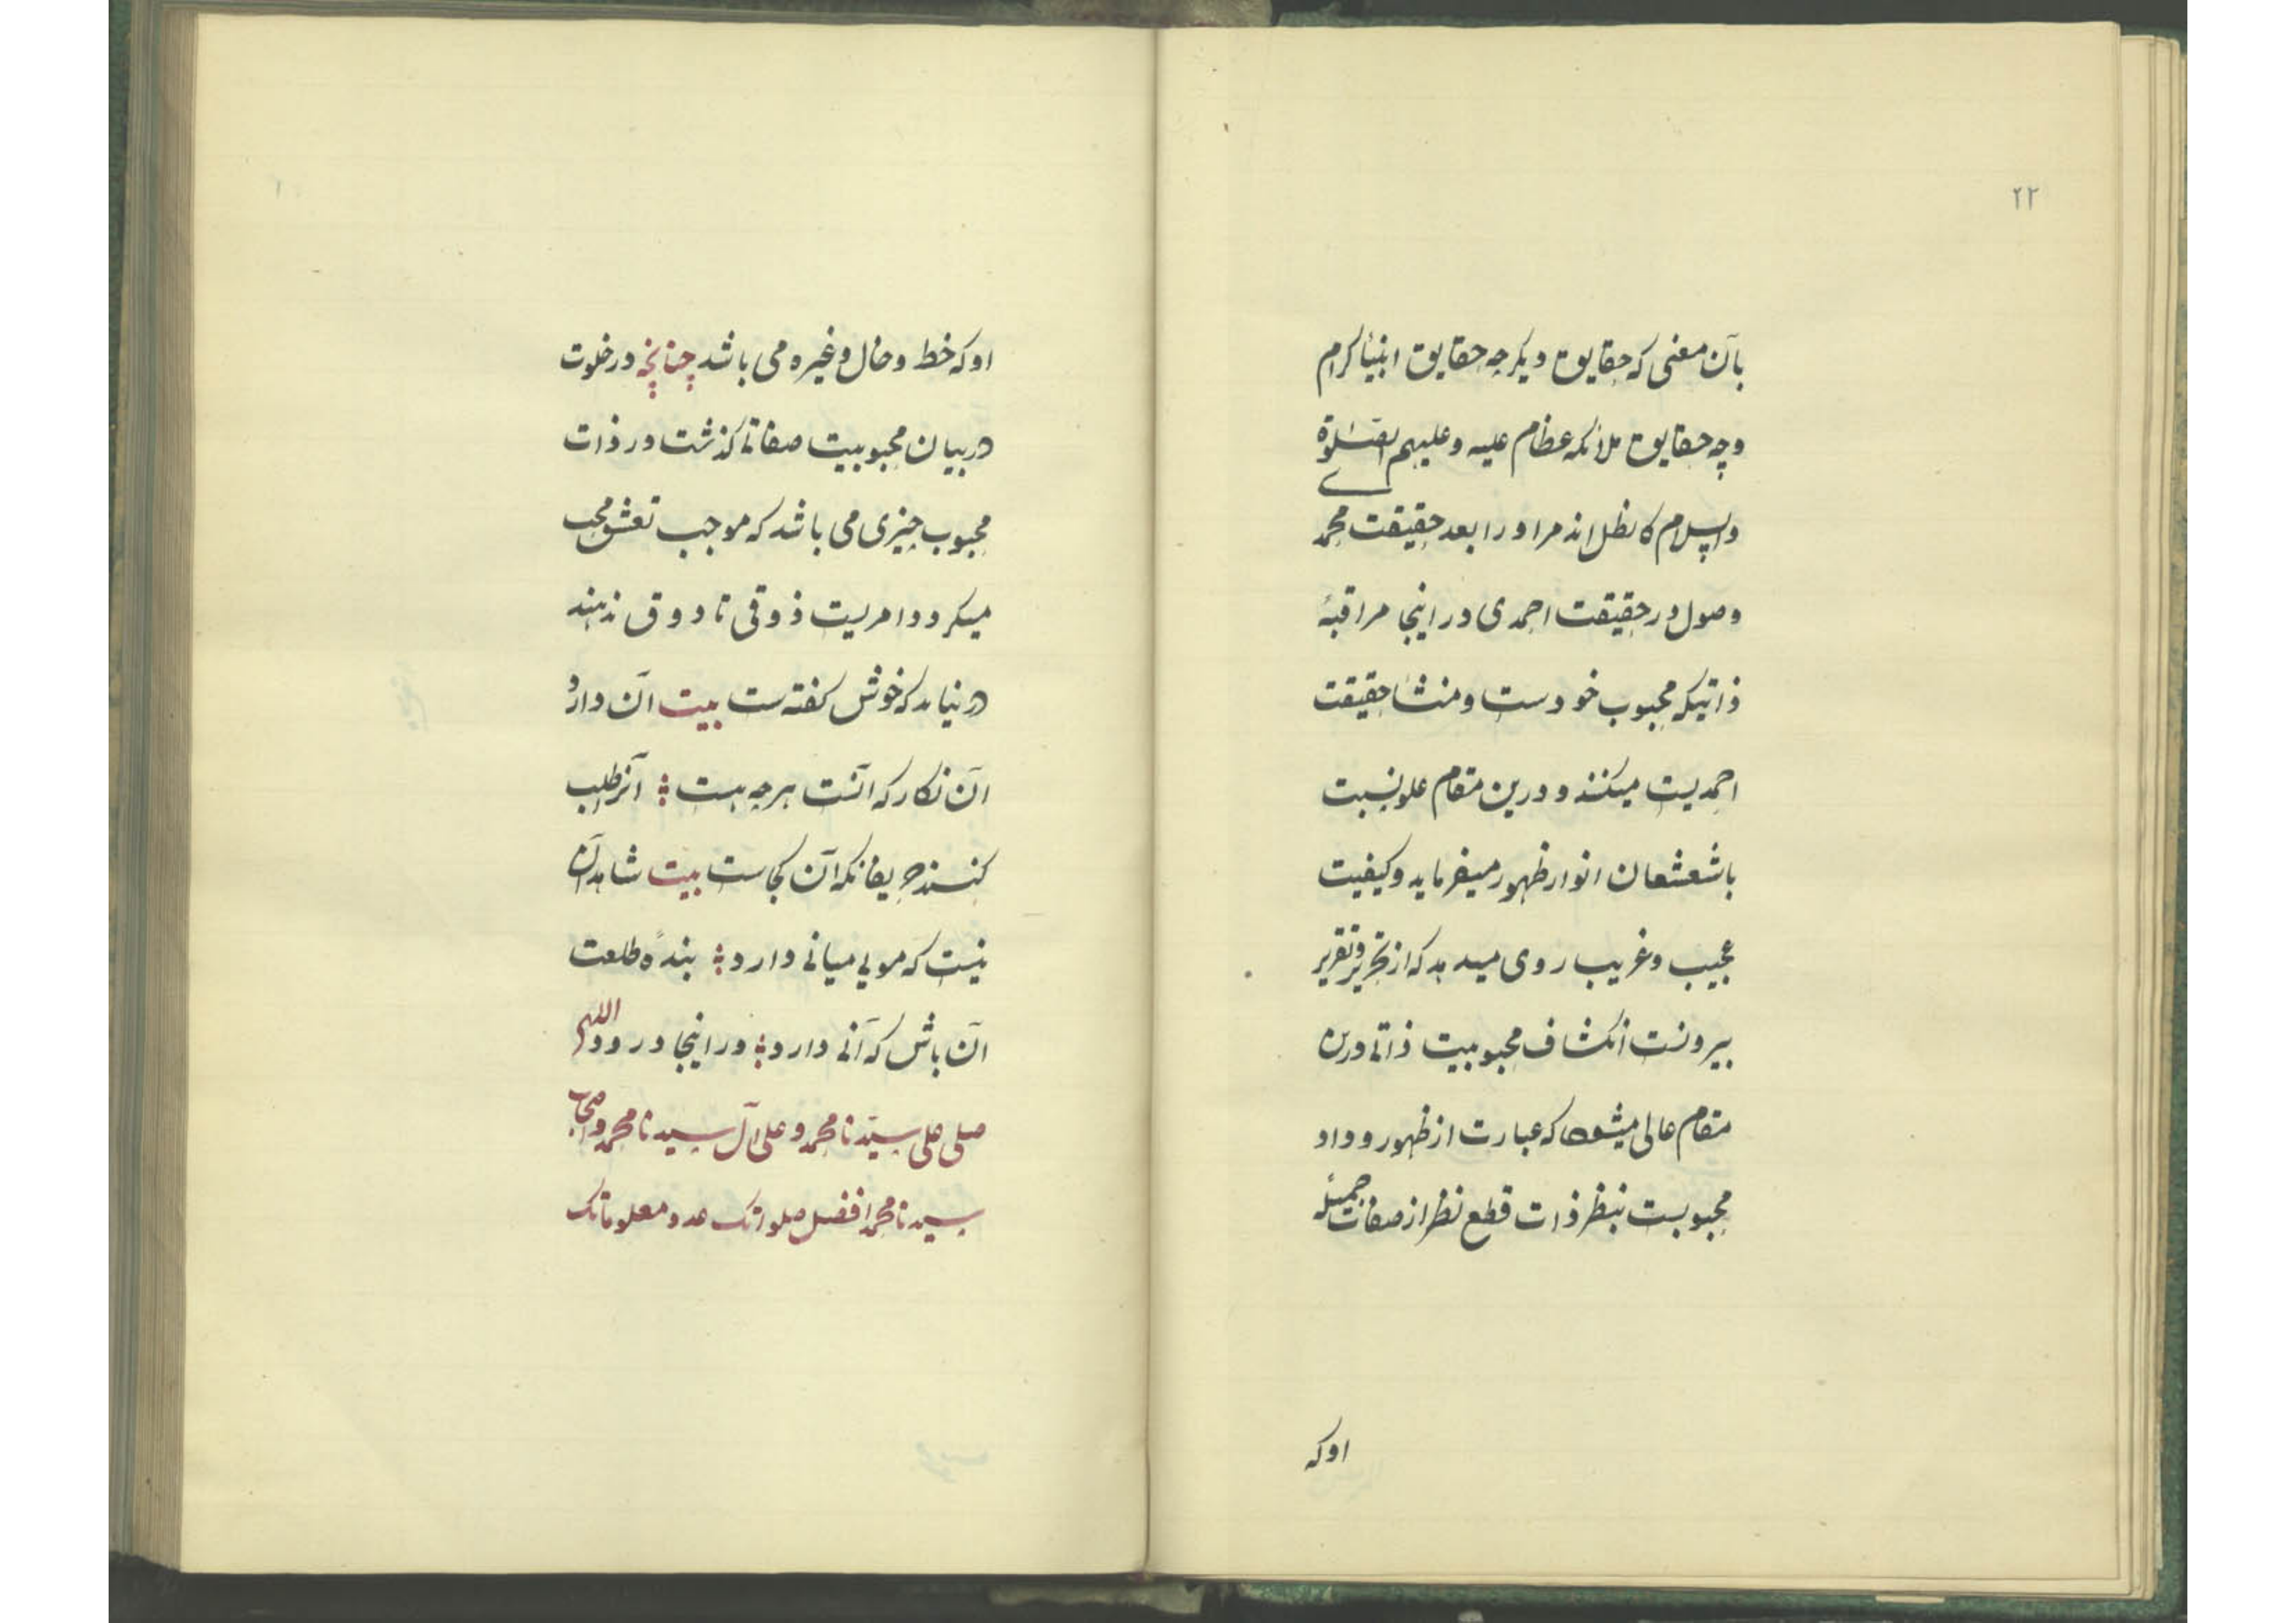 ۲۲
بآن معنی که حقایق دیگر چه حقایق انبیأ کرام
وچه حقایق ملائکه عظام علیه وعلیهم الصّلوة
والسلام کالظل اند مر او را بعد حقیقت محمد
وصول در حقیقت احمدی در اینجا مراقبهٔ
ذاتیکه محبوب خودست ومنشأ حقیقت
احمدیت میکنند و درین مقام علو نسبت
باشعشعان انوار ظهور میفرماید وکیفیت
عجیب وغریب روی میدهد که از تحریر وتقریر
بیرونست انکشاف محبوبیت ذاتی درین
مقام عالی میشود که عبارت از ظهور و داد
محبوبست بنظر ذات قطع نظر از صفات جمیله
اوکه
اوکه خط وخال وغیره می باشد چنانچه در خلوت
در بیان محبوبیت صفاتی کذشت در ذات
محبوب چیزی می باشد که موجب تعشق محب
میکردد امریست ذوقی تا ذوق ندهند
در نیابد که خوش کفته ست بیت آن دارد
آن نکار که آنست هرچه هست آنرا طلب
کنند حریفان که آن کجاست بیت شاهد آن
نیست که مویی میانی دارد بندهٔ طلعت
آن باش که آنی دارد در اینجا درود اللهم
صلی علی سیّدنا محمد وعلی آل سیدنا محمد واصحاب
سیدنا محمد افضل صلواتک عدد معلوماتک